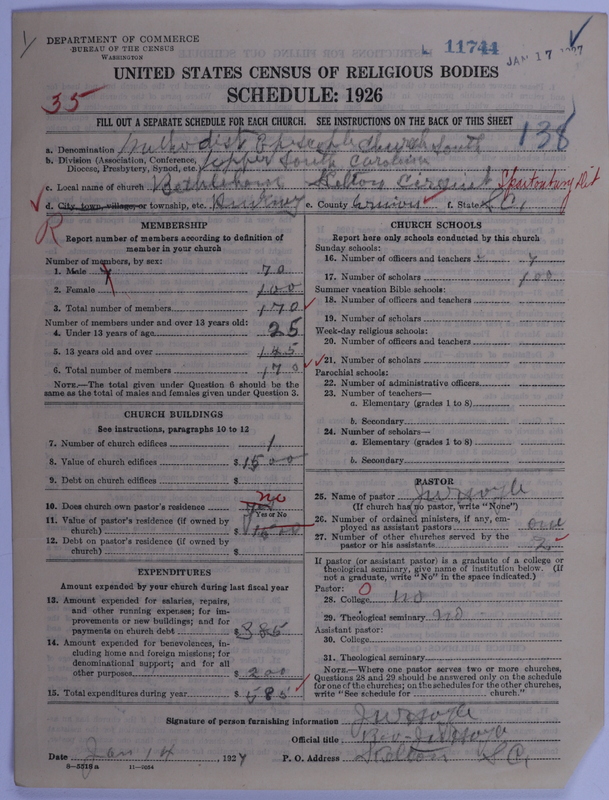 DEPARTMENT OF COMMERCE
BUREAU OF THE CENSUS
WASHINGTON
11744
JAN 17
UNITED STATES CENSUS OF RELIGIOUS BODIES
SCHEDULE: 1926
35
FILL OUT A SEPARATE SCHEDULE FOR EACH CHURCH. SEE INSTRUCTIONS ON THE BACK OF THIS SHEET
138
a. Denomination Methodist Episcopal Church South
b. Division (Association, Conference, Diocese, Presbytery, Synod, etc.) Upper South Carolina
c. Local name of church Kelton Circuit Spartanburg Dist
d. City, town, village, or township, etc. Pinkney e. County Union f. State S.C.
R
MEMBERSHIP
Report number of members according to definition of
member in your church
Number of members, by sex:
1. Male 70
2. Female 100
3. Total number of members 170
Number of members under and over 13 years old:
4. Under 13 years of age 25
5. 13 years old and over 145
6. Total number of members 170
NOTE.—The total given under Question 6 should be
same as the total of males and females given under Question 3.
CHURCH BUILDINGS
See instructions, paragraphs 10 to 12
7. Number of church edifices 1
8. Value of church edifices $ 1500
9. Debt on church edifices $
10. Does church own pastor's residence no
Yes or No
11. Value of pastor's residence (if owned by
church) $ 1500
12. Debt on pastor's residence (if owned by
church) $
EXPENDITURES
Amount expended by your church during last fiscal year
13. Amount expended for salaries, repairs,
and other running expenses; for im-
provements or new buildings; and for
payments on church debt $ 385
14. Amount expended for benevolences, in-
cluding home and foreign missions; for
denominational support; and for all
other purposes $ 200
15. Total expenditures during year $ 585
CHURCH SCHOOLS
Report here only schools conducted by this church
Sunday schools:
16. Number of officers and teachers 7
17. Number of scholars 100
Summer vacation Bible schools:
18. Number of officers and teachers
19. Number of scholars
Week-day religious schools:
20. Number of officers and teachers
21. Number of scholars
Parochial schools:
22. Number of administrative officers
23. Number of teachers—
a. Elementary (grades 1 to 8)
b. Secondary
24. Number of scholars—
a. Elementary (grades 1 to 8)
b. Secondary
PASTOR
25. Name of pastor J W Hoyle
(If church has no pastor, write "None")
26. Number of ordained ministers, if any, em-
ployed as assistant pastors one
27. Number of other churches served by the
pastor or his assistants 2
If pastor (or assistant pastor) is a graduate of a college or
theological seminary, give name of institution below. (If
not a graduate, write "No" in the space indicated.)
Pastor: O
28. College no
29. Theological seminary no
Assistant pastor:
30. College
31. Theological seminary
NOTE.—Where one pastor serves two or more churches,
Questions 28 and 29 should be answered only on the schedule
for one of the churches; on the schedules for the other churches,
write "See schedule for church."
Signature of person furnishing information J W Hoyle
Official title Rev J W Hoyle
Date Jan 14 1927 P. O. Address Kelton S C,
8—5518a 11—9054